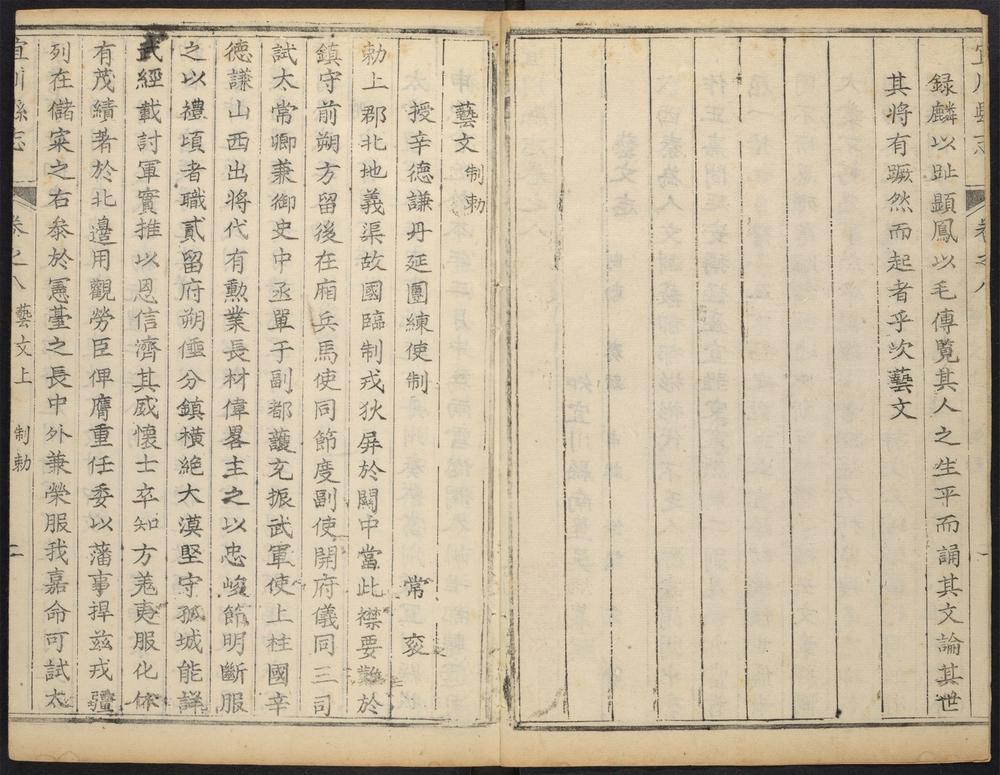 錄麟以趾顯鳳以毛傳覽其人之生平而誦其文論其世
其將有蹶然而起者乎次藝文
藝文 制勅
授辛德謙丹延團練使制
常袞
勅上郡北地義渠故國臨制戎狄屏於關中當此襟要難於
鎮守前朔方留後在廂兵馬使同節度副使開府儀同三司
試太常卿兼御史中丞單于副都護充振武軍使上柱國辛
德謙山西出將代有勳業長材偉畧主之以忠峻節明斷服
之以禮頃者職貳留府朔僵分鎮橫絶大漠堅守孤城能詳
武經載討軍實推以恩信濟其威懷士卒知方羗夷服化依
有茂績著於北邉用觀勞臣俾膺重任委以藩事捍兹戎疆
列在儲寀之右叅於憲臺之長中外兼榮服我嘉命可試太
宜川縣志
卷之八 藝文上 制勅 二